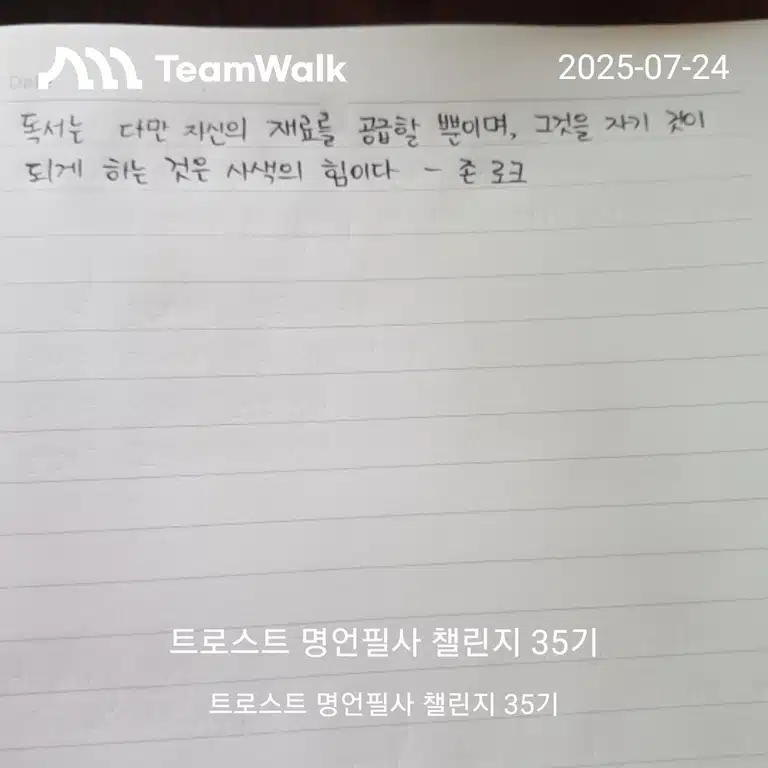 TeamWalk
2025-07-24
독서는 다만 지신의 재료를 공급할 뿐이며, 그것을 자기 것이
되게 하는 것은 사색의 힘이다 - 존 로크
트로스트 명언필사 챌린지 35기
트로스트 명언필사 챌린지 35기